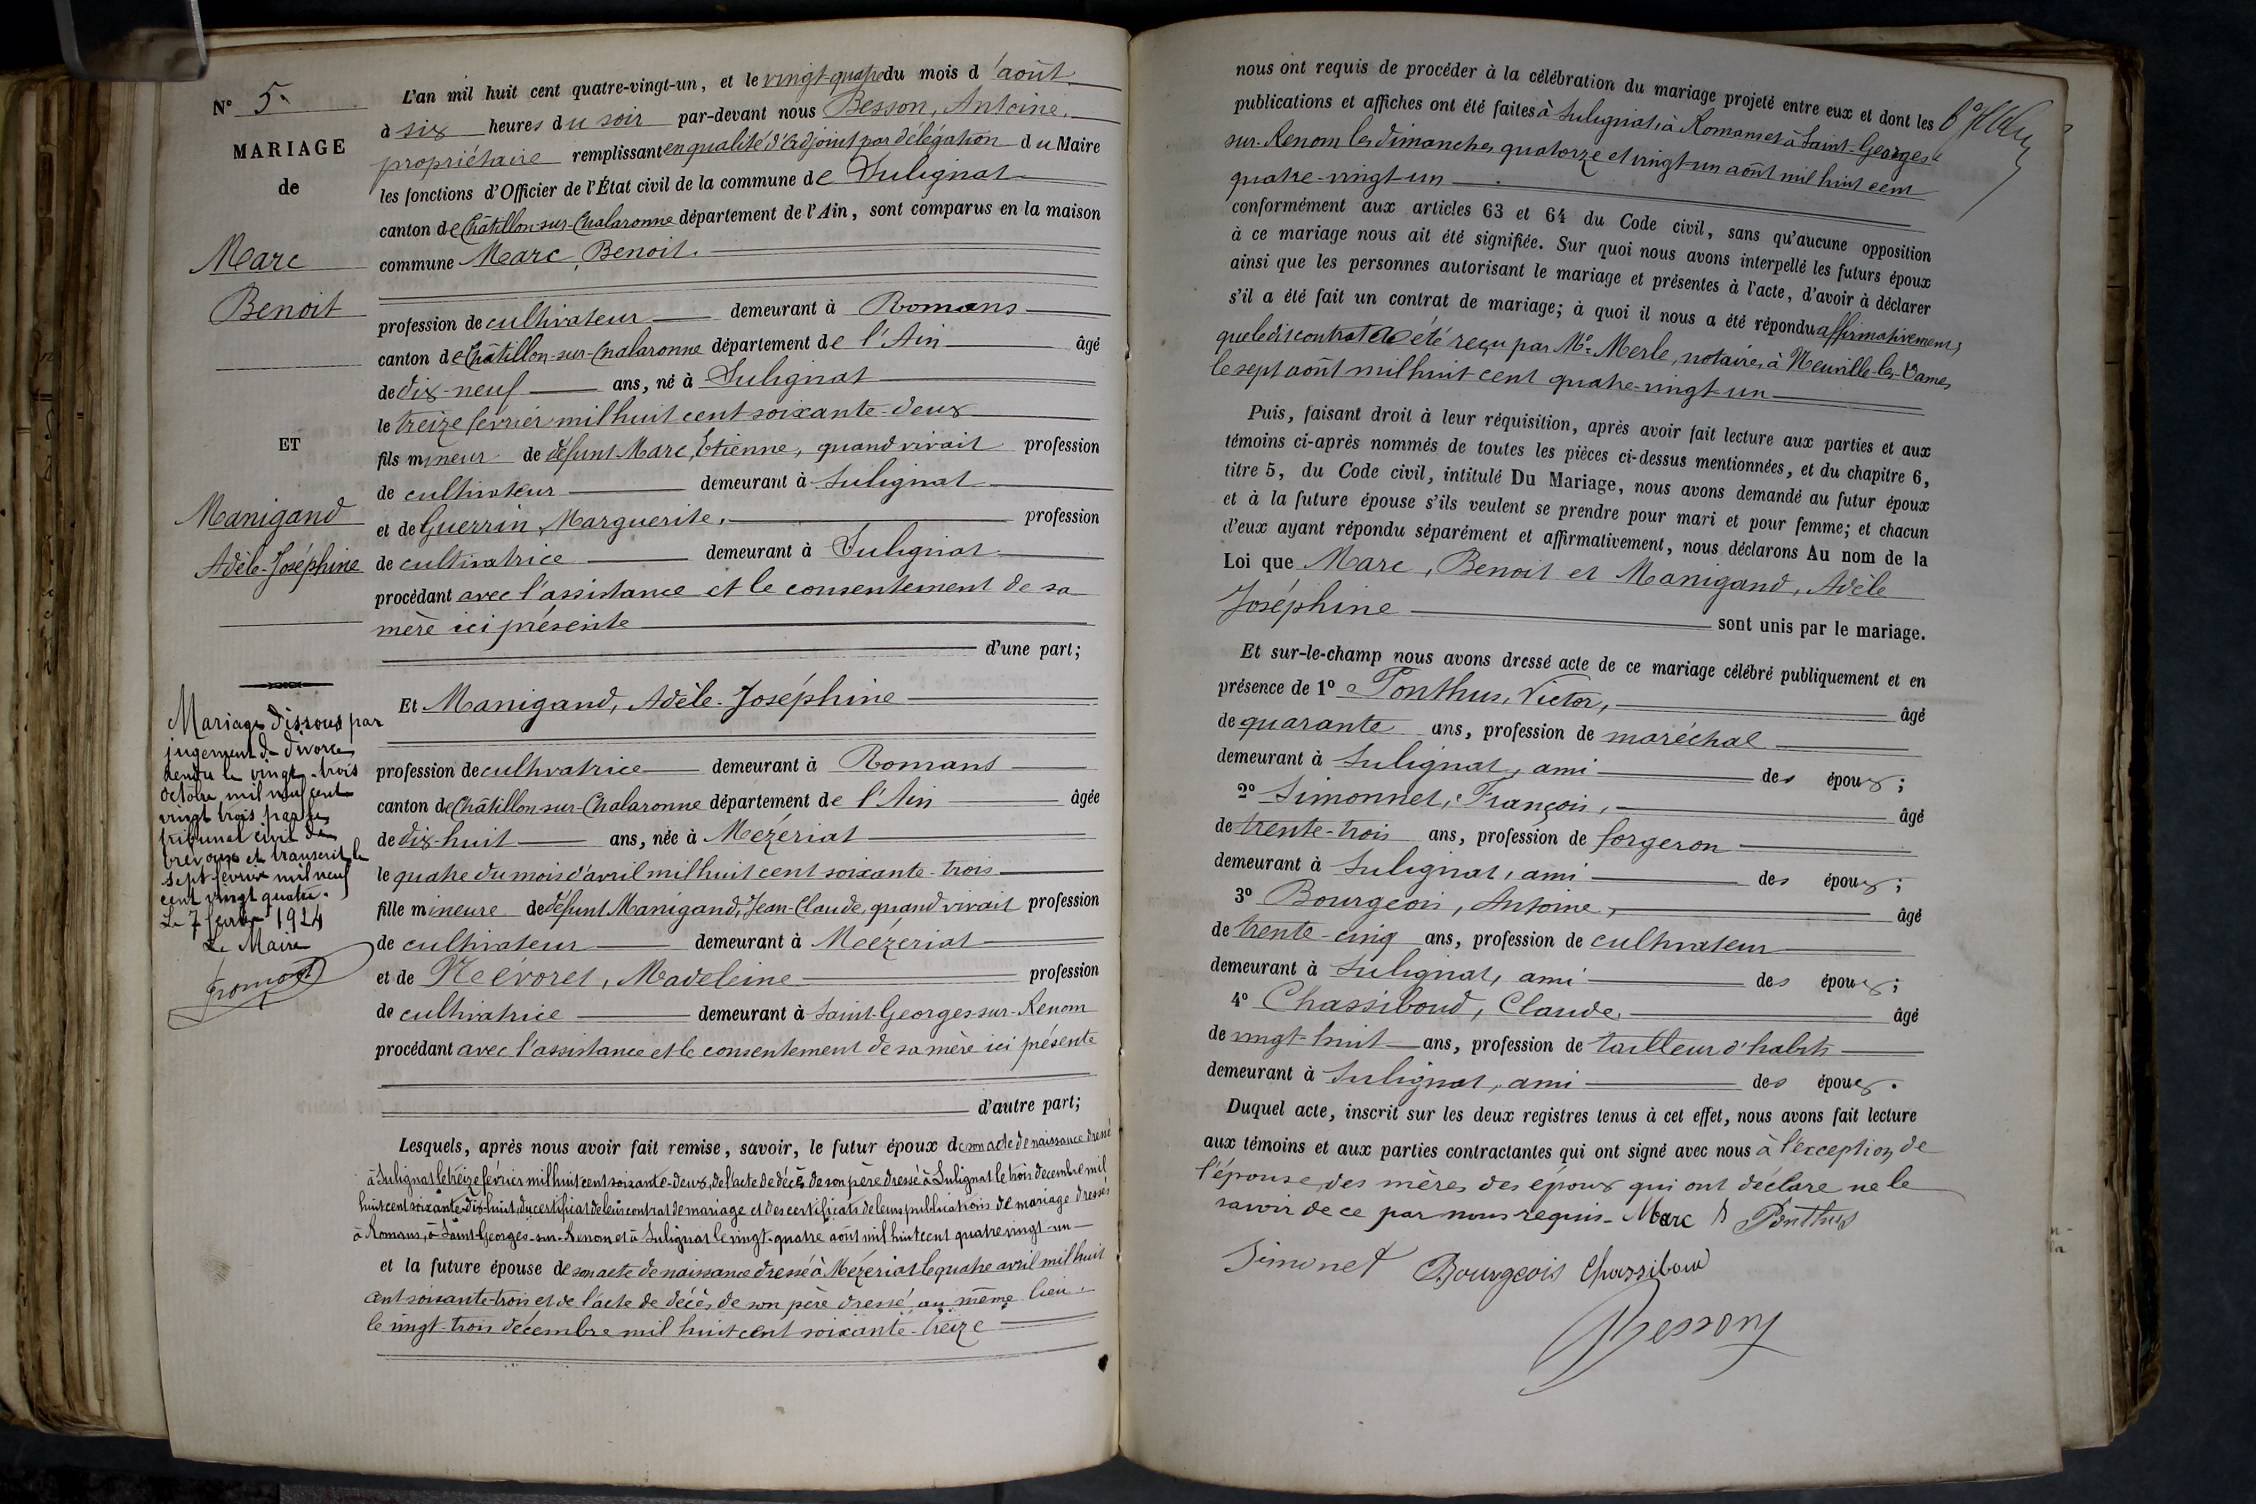 N° 5
MARIAGE
de
Marc
Benoit
ET
Manigand
Adèle-Joséphine
Mariage dissous par
jugement de divorce
rendu le vingt-trois
octobre mil neuf cent
vingt trois par le
tribunal civil de
Trévoux et transcrit le
sept février mil neuf
cent vingt quatre.
Le 7 février 1924
Le Maire
L'an mil huit cent quatre-vingt-un, et le vingt-quatre du mois d'août
à six heures du soir par-devant nous Besson, Antoine,
propriétaire remplissant en qualité d'adjoint par délégation du Maire
les fonctions d'Officier de l'État civil de la commune de Sulignat
canton de Châtillon-sur-Chalaronne département de l'Ain, sont comparus en la maison
commune Marc, Benoit.
profession de cultivateur demeurant à Romans
canton de Châtillon-sur-Chalaronne département de l'Ain âgé
de dix-neuf ans, né à Sulignat
le treize février mil huit cent soixante-deux
fils mineur de défunt Marc, Etienne, quand vivait profession
de cultivateur demeurant à Sulignat
et de Guerrin, Marguerite, profession
de cultivatrice demeurant à Sulignat
procédant avec l'assistance et le consentement de sa
mère ici présente
d'une part;
Et Manigand, Adèle-Joséphine
profession de cultivatrice demeurant à Romans
canton de Châtillon-sur-Chalaronne département de l'Ain âgée
de dix-huit ans, née à Mézériat
le quatre du mois d'avril mil huit cent soixante-trois
fille mineure de défunt Manigand, Jean-Claude, quand vivait profession
de cultivateur demeurant à Mézériat
et de Névoret, Madeleine profession
de cultivatrice demeurant à Saint-Georges-sur-Renom
procédant avec l'assistance et le consentement de sa mère ici présente
d'autre part;
Lesquels, après nous avoir fait remise, savoir, le futur époux de son acte de naissance dressé
à Sulignat le treize février mil huit cent soixante-deux, de l'acte de décès de son père dressé à Sulignat le trois décembre mil
huit cent soixante-dix-huit, du certificat de leur contrat de mariage et des certificats de leurs publications de mariage dressés
à Romans, à Saint-Georges-sur-Renom et à Sulignat le vingt-quatre août mil huit cent quatre vingt-un
et la future épouse de son acte de naissance dressé à Mézériat le quatre avril mil huit
cent soixante-trois et de l'acte de décès de son père dressé au même lieu
le vingt-trois décembre mil huit cent soixante-treize
nous ont requis de procéder à la célébration du mariage projeté entre eux et dont les
publications et affiches ont été faites à Sulignat, à Romans et à Saint-Georges-
sur-Renom les dimanches quatorze et vingt-un août mil huit cent
quatre-vingt-un
conformément aux articles 63 et 64 du Code civil, sans qu'aucune opposition
à ce mariage nous ait été signifiée. Sur quoi nous avons interpellé les futurs époux
ainsi que les personnes autorisant le mariage et présentes à l'acte, d'avoir à déclarer
s'il a été fait un contrat de mariage; à quoi il nous a été répondu affirmativement,
que le dit contrat a été reçu par Me Merle, notaire, à Neuville-les-Dames,
le sept août mil huit cent quatre-vingt-un
Puis, faisant droit à leur réquisition, après avoir fait lecture aux parties et aux
témoins ci-après nommés de toutes les pièces ci-dessus mentionnées, et du chapitre 6,
titre 5, du Code civil, intitulé Du Mariage, nous avons demandé au futur époux
et à la future épouse s'ils veulent se prendre pour mari et pour femme; et chacun
d'eux ayant répondu séparément et affirmativement, nous déclarons Au nom de la
Loi que Marc, Benoit et Manigand, Adèle
Joséphine
sont unis par le mariage.
Et sur-le-champ nous avons dressé acte de ce mariage célébré publiquement et en
présence de 1° Ponthus, Victor, âgé
de quarante ans, profession de maréchal
demeurant à Sulignat, ami des époux;
2° Simonnet, François, âgé
de trente-trois ans, profession de forgeron
demeurant à Sulignat, ami des époux;
3° Bourgeois, Antoine, âgé
de trente-cinq ans, profession de cultivateur
demeurant à Sulignat, ami des époux;
4° Chassiboud, Claude, âgé
de vingt-huit ans, profession de tailleur d'habits
demeurant à Sulignat, ami des époux.
Duquel acte, inscrit sur les deux registres tenus à cet effet, nous avons fait lecture
aux témoins et aux parties contractantes qui ont signé avec nous à l'exception de
l'épouse, des mères des époux qui ont déclaré ne le
savoir de ce par nous requis. Marc B Ponthus
Simonet Bourgeois Chassiboud
Besson